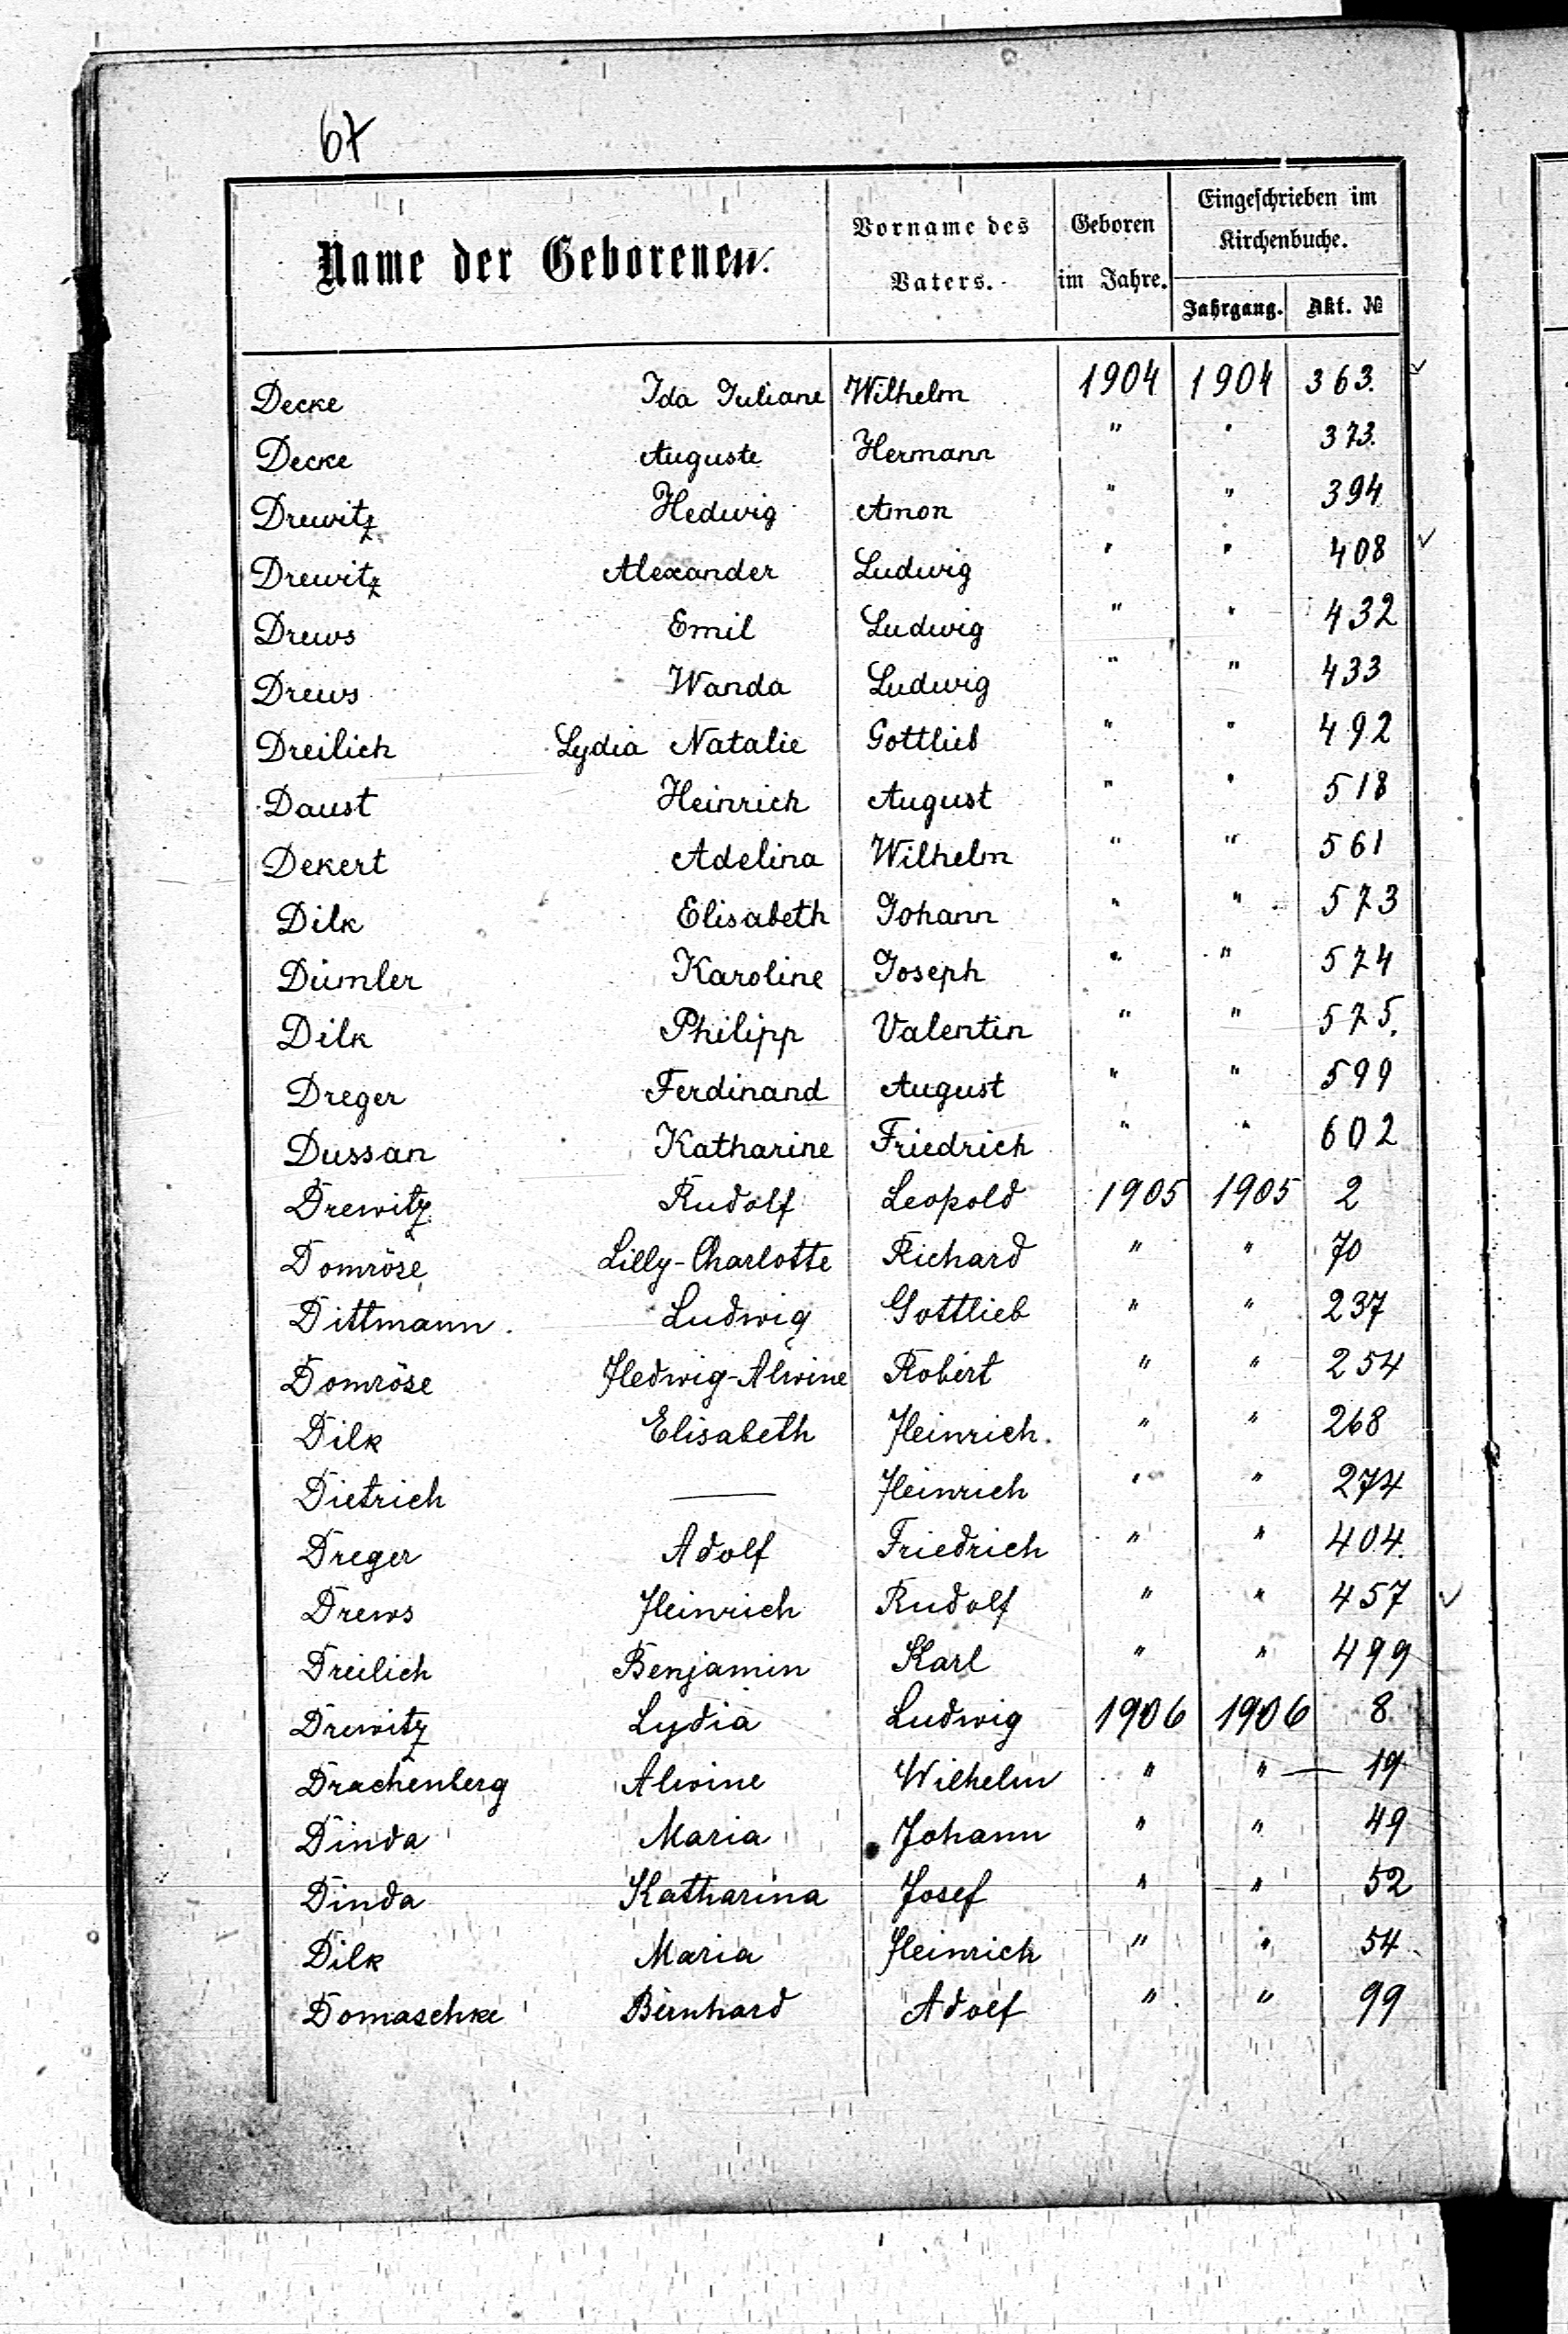 67
Name der Geborenen.
Vorname des Vaters.
Geboren im Jahre.
Eingeschrieben im Kirchenbuche.
Jahrgang. Akt. №
Decke Ida Juliane Wilhelm 1904 1904 363.
Decke Auguste Hermann " " 373.
Drewitz Hedwig Amon " " 394
Drewitz Alexander Ludwig " " 408
Drews Emil Ludwig " " 432
Drews Wanda Ludwig " " 433
Dreilich Lydia Natalie Gottlieb " " 492
Daust Heinrich August " " 518
Dekert Adelina Wilhelm " " 561
Dilk Elisabeth Johann " " 573
Dümler Karoline Joseph " " 574
Dilk Philipp Valentin " " 575.
Dreger Ferdinand August " " 599
Dussan Katharine Friedrich " " 602
Drewitz Rudolf Leopold 1905 1905 2
Domröse Lilly-Charlotte Richard " " 70
Dittmann. Ludwig Gottlieb " " 237
Domröse Hedwig-Alwine Robert " " 254
Dilk Elisabeth Heinrich. " " 268
Dietrich — Heinrich " " 274
Dreger Adolf Friedrich " " 404.
Drews Heinrich Rudolf " " 457
Dreilich Benjamin Karl " " 499
Drewitz Lydia Ludwig 1906 1906 8
Drachenberg Alwine Wilhelm " " — 19
Dinda Maria Johann " " 49
Dinda Katharina Josef " " 52
Dilk Maria Heinrich " " 54
Domaschke Bernhard Adolf " " 99